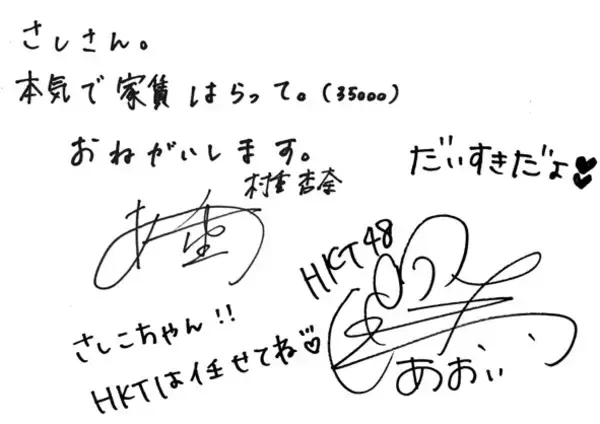 さしさん。
本気で家賃はらって。(35000)
おねがいします。
村重杏奈
だいすきだよ♥♥
HKT48
さしこちゃん!!
HKTは任せてね♡
あおいい